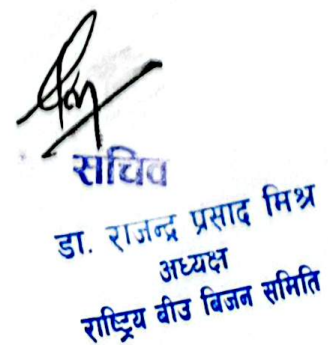 सचिव
डा. राजन्द्र प्रसाद मिश्र
अध्यक्ष
राष्ट्रिय बीउ बिजन समिति